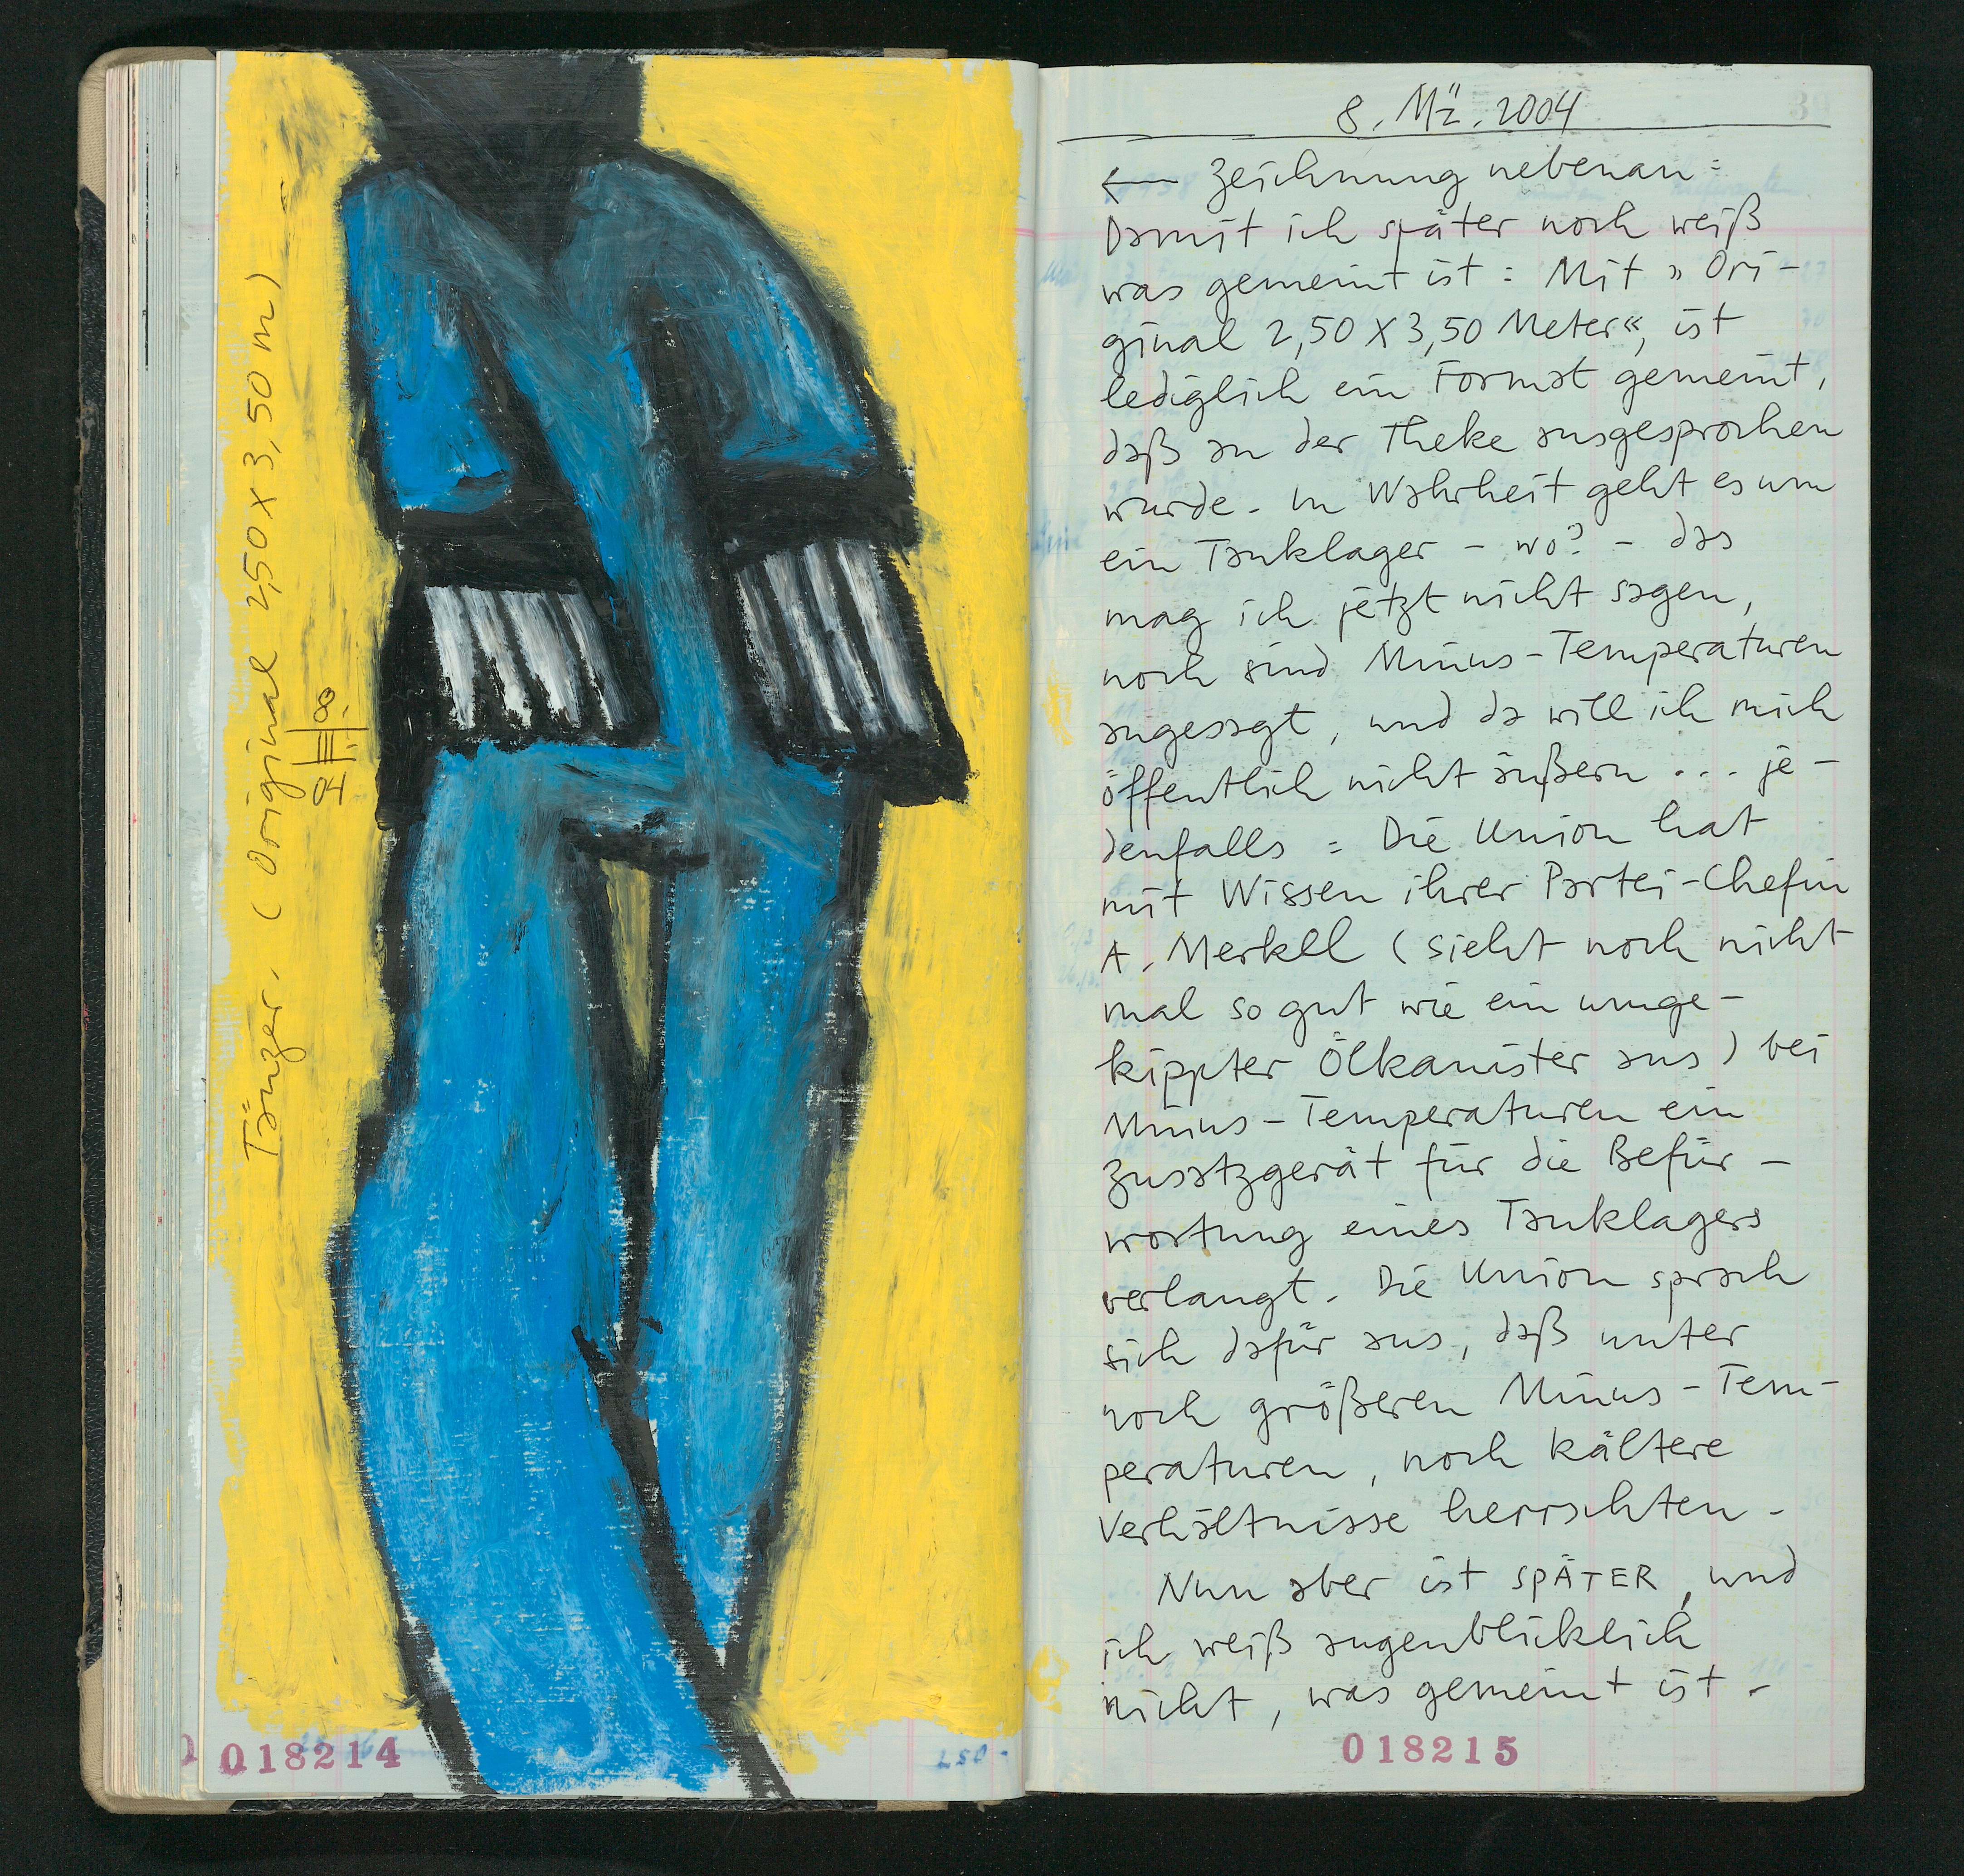 Tänzer. (Original 2,50 x 3,50 m)
8.
04
018214
250-
8. Mä. 2004
← Zeichnung nebenan:
Damit ich später noch weiß
was gemeint ist: Mit »Ori-
ginal 2,50 x 3,50 Meter«, ist
lediglich ein Format gemeint,
daß an der Theke ausgesprochen
wurde. In Wahrheit geht es um
ein Tanklager - wo? - das
mag ich jetzt nicht sagen,
noch sind Minus-Temperaturen
angesagt, und da will ich mich
öffentlich nicht äußern ... je-
denfalls: Die Union hat
mit Wissen ihrer Partei-Chefin
A. Merkel (sieht noch nicht
mal so gut wie ein umge-
kippter Ölkanister aus) bei
Minus-Temperaturen ein
Zusatzgerät für die Befür-
wortung eines Tanklagers
verlangt. Die Union sprach
sich dafür aus, daß unter
noch größeren Minus-Tem-
peraturen, noch kältere
Verhältnisse herrschten.
Nun aber ist SPÄTER, und
ich weiß augenblicklich
nicht, was gemeint ist.
018215